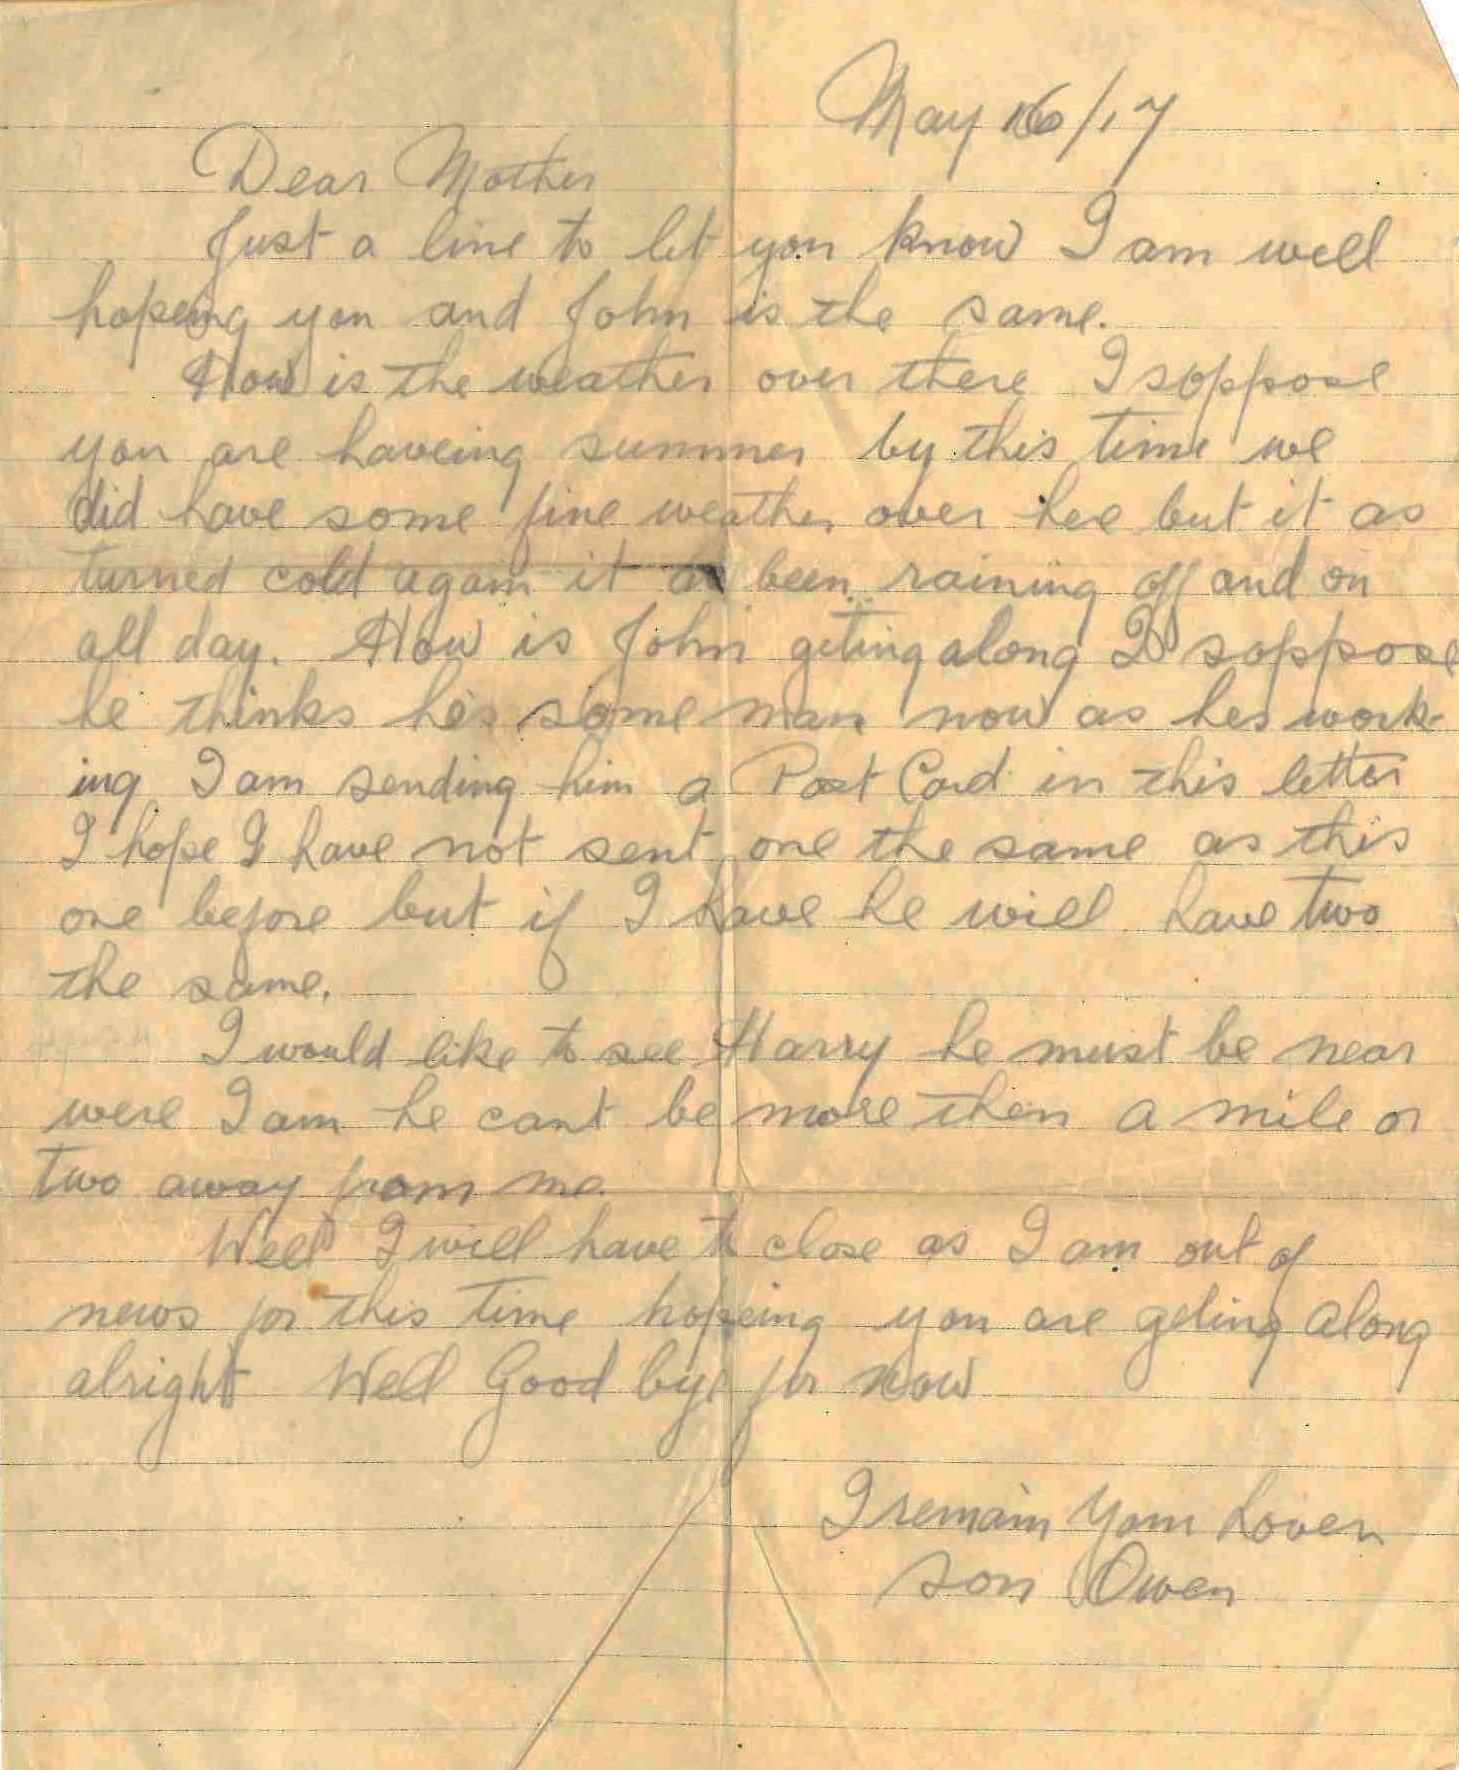 May 16/17
Dear Mother
Just a line to let you know I am well
hopeing you and John is the same.
How is the weather over there I soppose
you are haveing summer by this time we
did have some fine weather over hee but it as
turned cold again it as been raining off and on
all day. How is John geting along I soppose
he thinks hes some man now as hes work-
ing I am sending him a Post Card in this letter
I hope I have not sent one the same as this
one before but if I have he will have two
the same.
I would like to see Harry he must be near
were I am he cant be more then a mile or
two away from me.
Well I will have to close as I am out of
news for this time hopeing you are geting along
alright Well Good bye for now
I remain Your Loven
son Owen